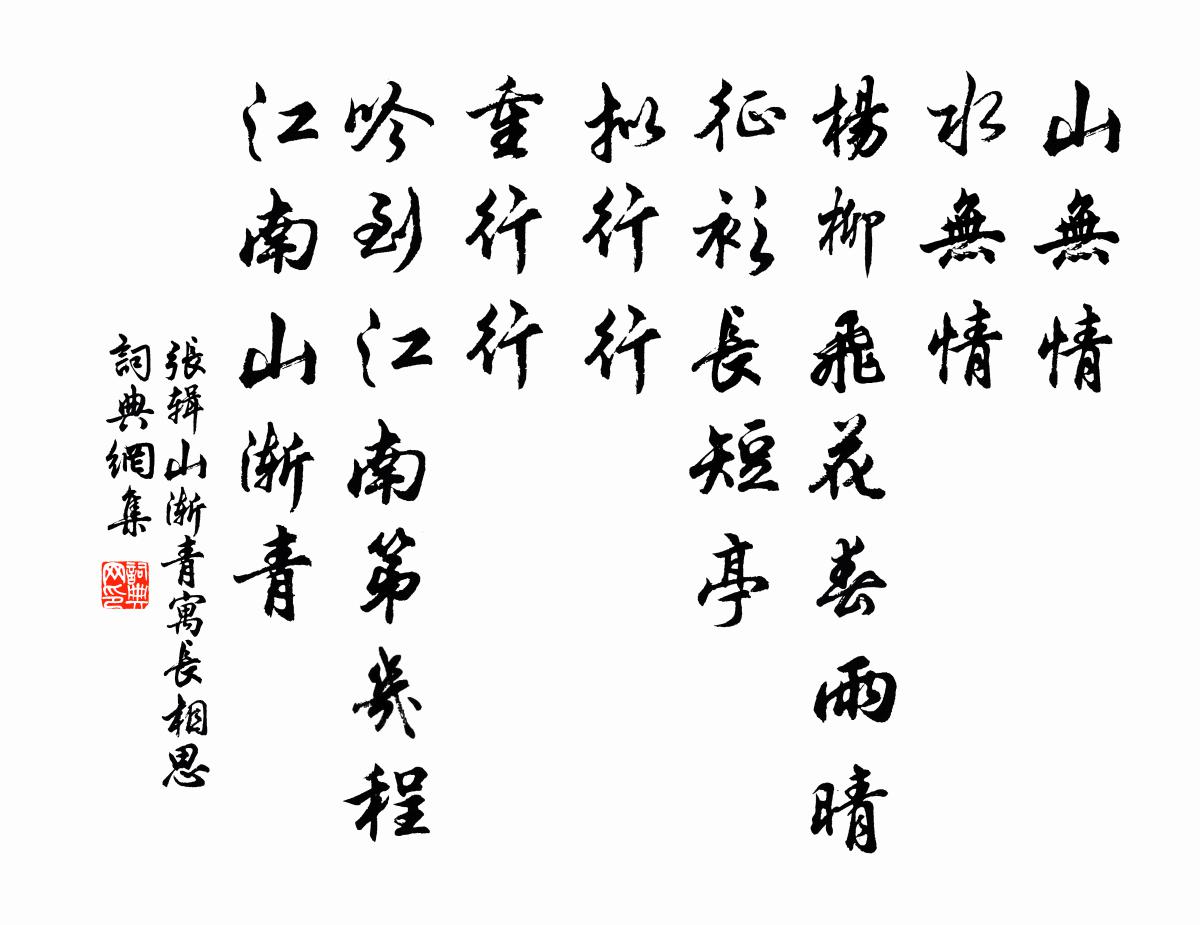 山無情
水無情
楊柳飛花春雨晴
征衫長短亭
擬行行
重行行
吟到江南第幾程
江南山漸青
張辑山漸青寓長相思
詞典網集
詞典网印